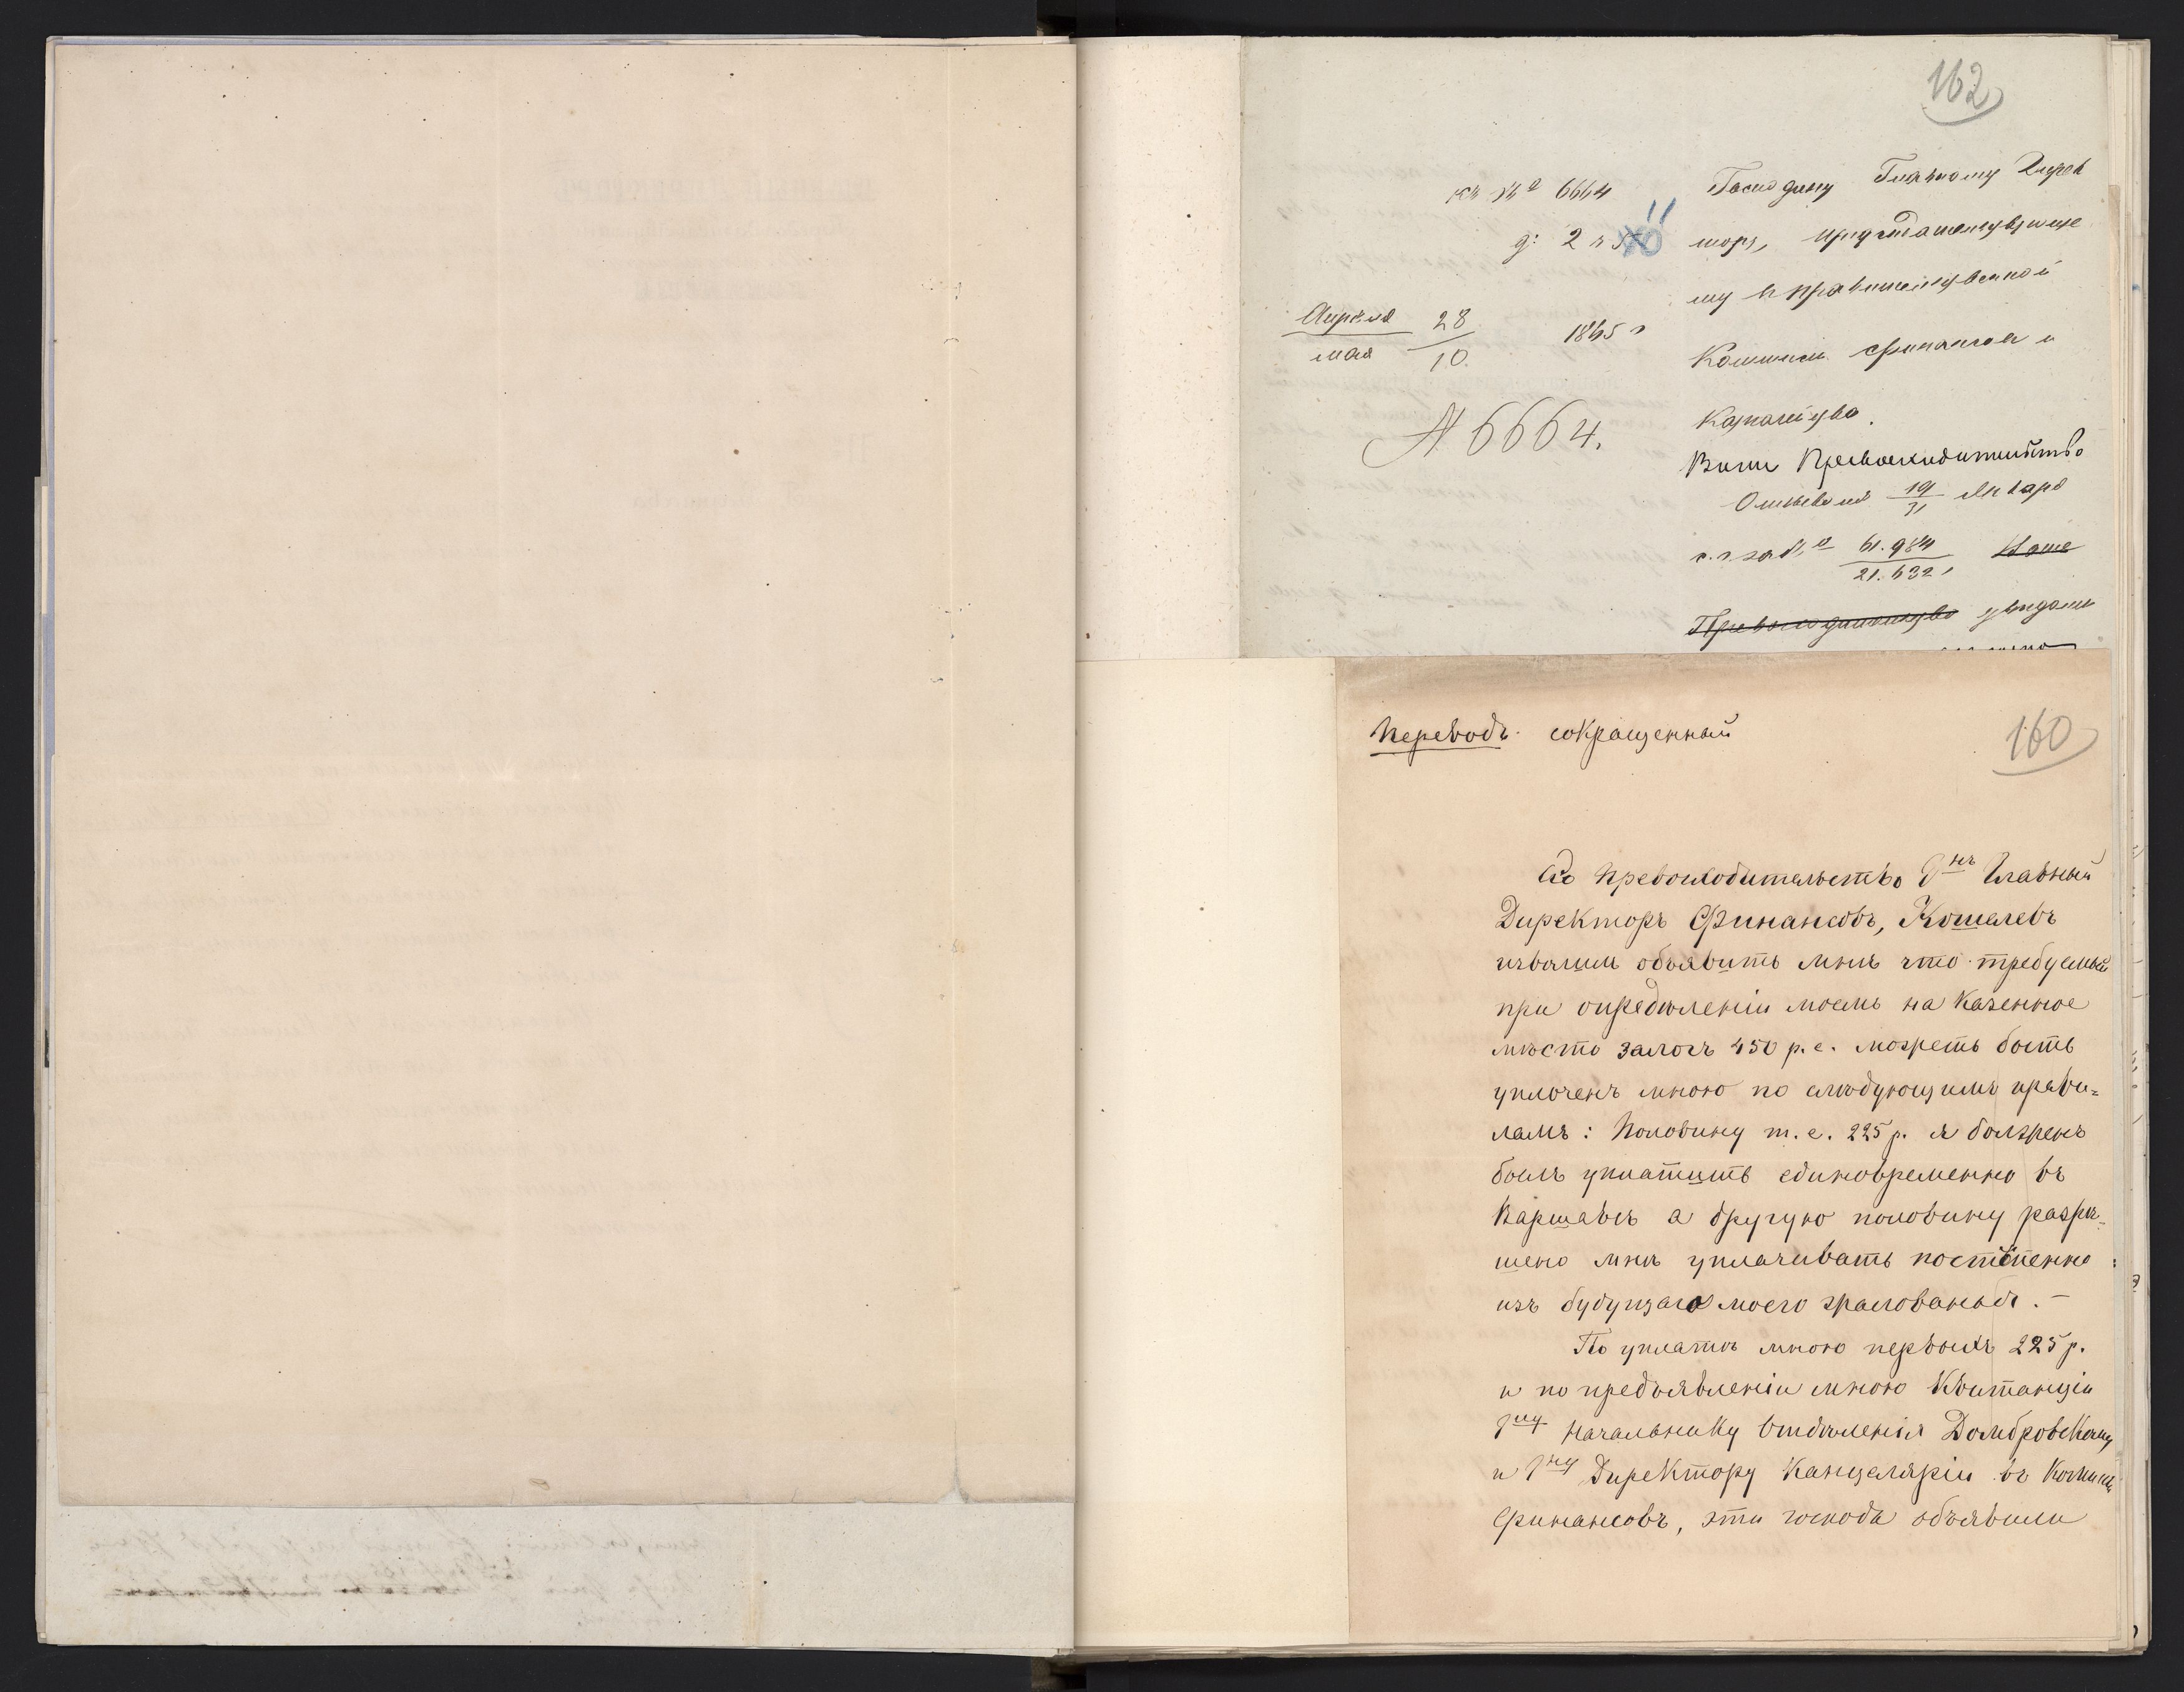 162
къ № 6664
д: 2 ч 11
Апрѣля 28
мая 10.
1865 г
№ 6664.
Господину Главному Дирек
тору, предсѣдательствующе
му въ правительственной
Коммисіи финансовъ и
Казначейства.
Ваше Превосходительство
Отношеніемъ 19/31 Января
с. г. за № 61.984/21.632, Ваше
Превосходительство увѣдоми
Переводъ сокращенный
160
Его Превосходительство Гнъ Главный
Директоръ Финансовъ, Кошелевъ
изволилъ объявить мнѣ что требуемый
при опредѣленіи моемъ на казенное
мѣсто залогъ 450 р. с. можетъ быть
уплоченъ мною по слѣдующимъ прави=
ламъ: Половину т. е. 225 р. я долженъ
былъ уплатить единовременно въ
Варшавѣ а другую половину разрѣ=
шено мнѣ уплачивать постепенно
изъ будущаго моего жалованья. —
По уплатѣ мною первыхъ 225 р.
и по предъявленіи мною Квитанціи
Гну Начальнику Отдѣленія Домбровскому
и Гну Директору Канцеляріи въ Комисіи
Финансовъ, эти господа объявили